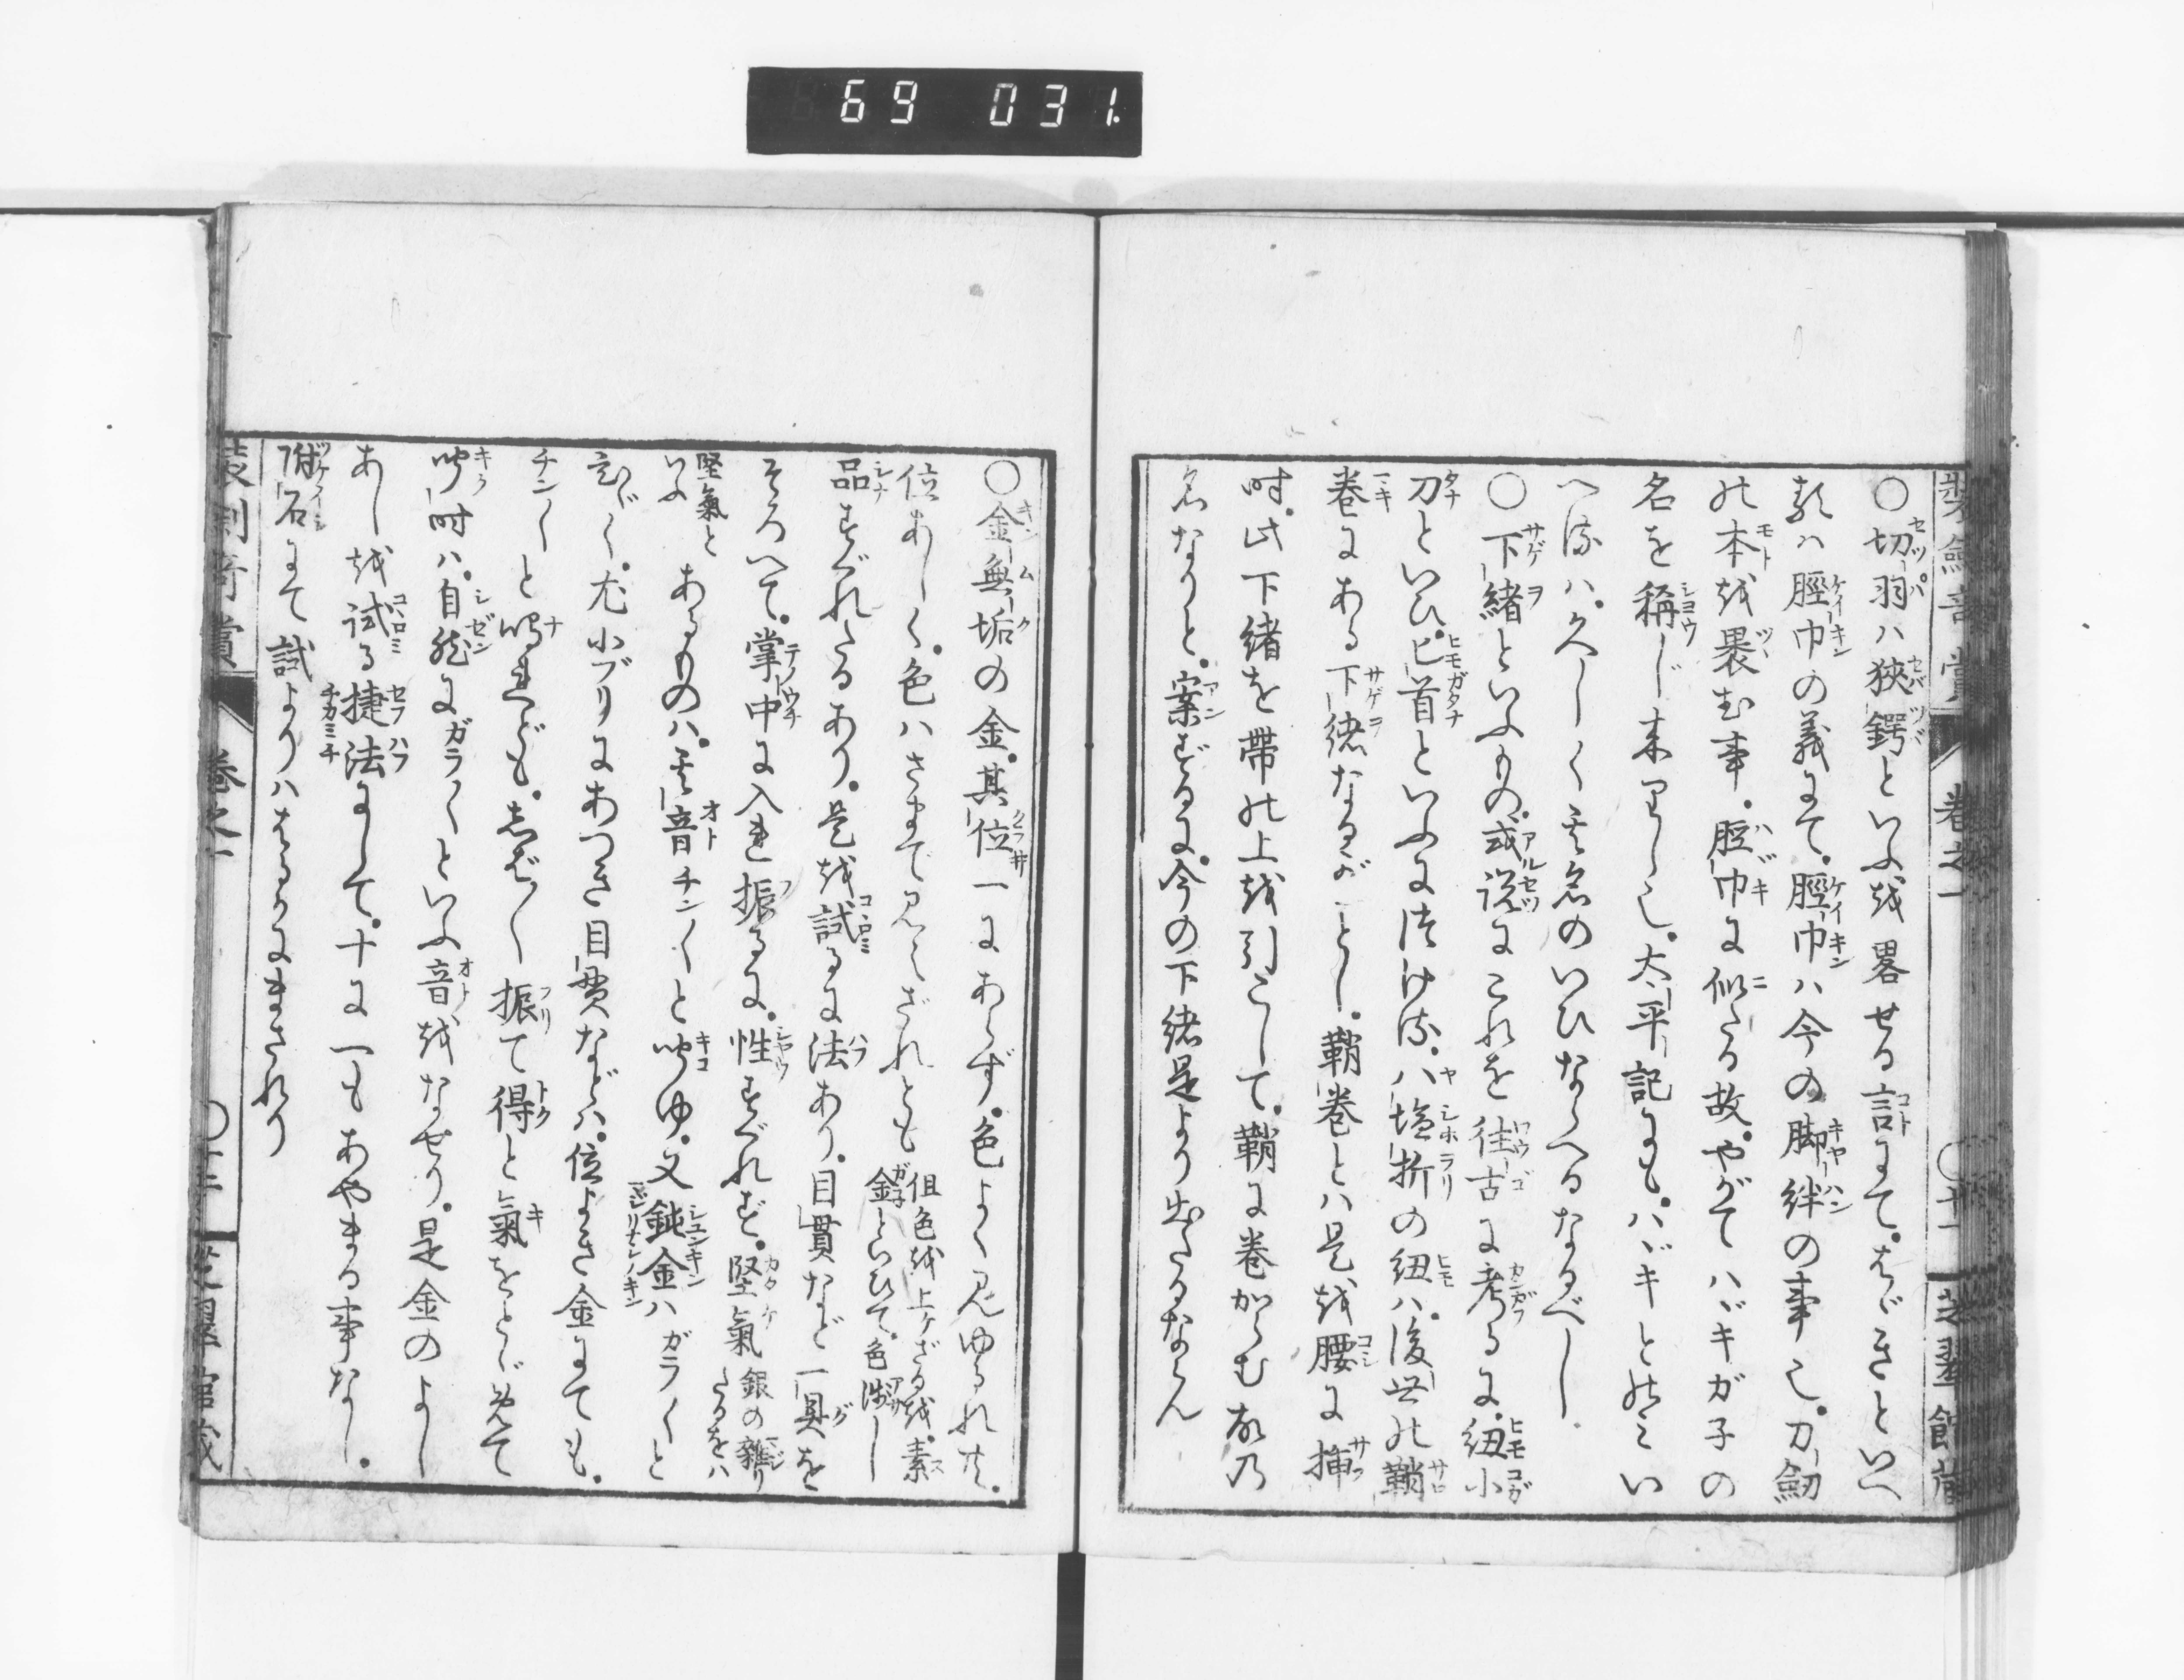 69 031.
装劔奇賞 巻之一 ○十一 芝翠館蔵
○切羽ハ狭鍔といふ越畧せる言にて。はゞきといへ
るハ脛巾の義にて。脛巾ハ今の脚絆の事也。刀劔
の本越褁む事。脛巾に似たる故。やがてハヾキガ子の
名を称し来りし也。太平記にも。ハヾキとのミい
へるハ。久しく其名のいひならへるなるべし。
○下緒といふもの。或説にこれを往古に考るに。紐小
刀といひ。匕首といふに附ける。八塩折の紐ハ。後世の鞘
巻にある下緒なるがごとし。鞘巻とハ是越腰に挿
時。此下緒を帯の上越引こして。鞘に巻からむ故の
名なりと。案ずるに。今の下緒是より出たるならん
○金無垢の金。其位一にあらず。色よく見ゆるれ共。
位あしく。色ハさまで見えざれとも 俎色越上ケざる越。素金といひて。色渋し
品すぐれたるあり。是越試るに法あり。目貫など一具を
そろへて。掌中に入れ振るに。性すぐれず。堅氣 銀の雑りたるをハ
堅氣といふ あるものハ。其音チン〱と聞ゆ。又鈍金ハガラ〱と
ひゞく。尤小ブリにあつき目貫などハ。位よき金にても。
チン〱と鳴れども。しばらく振て得と氣をとゞめて
聞時ハ。自然にガラ〱といふ音越なせり。是金のよし
あし越試る捷法にして。十に一もあやまる事なし。
附石にて試よりハはるかにまされり
装劔奇賞 巻之一 芝翠館蔵